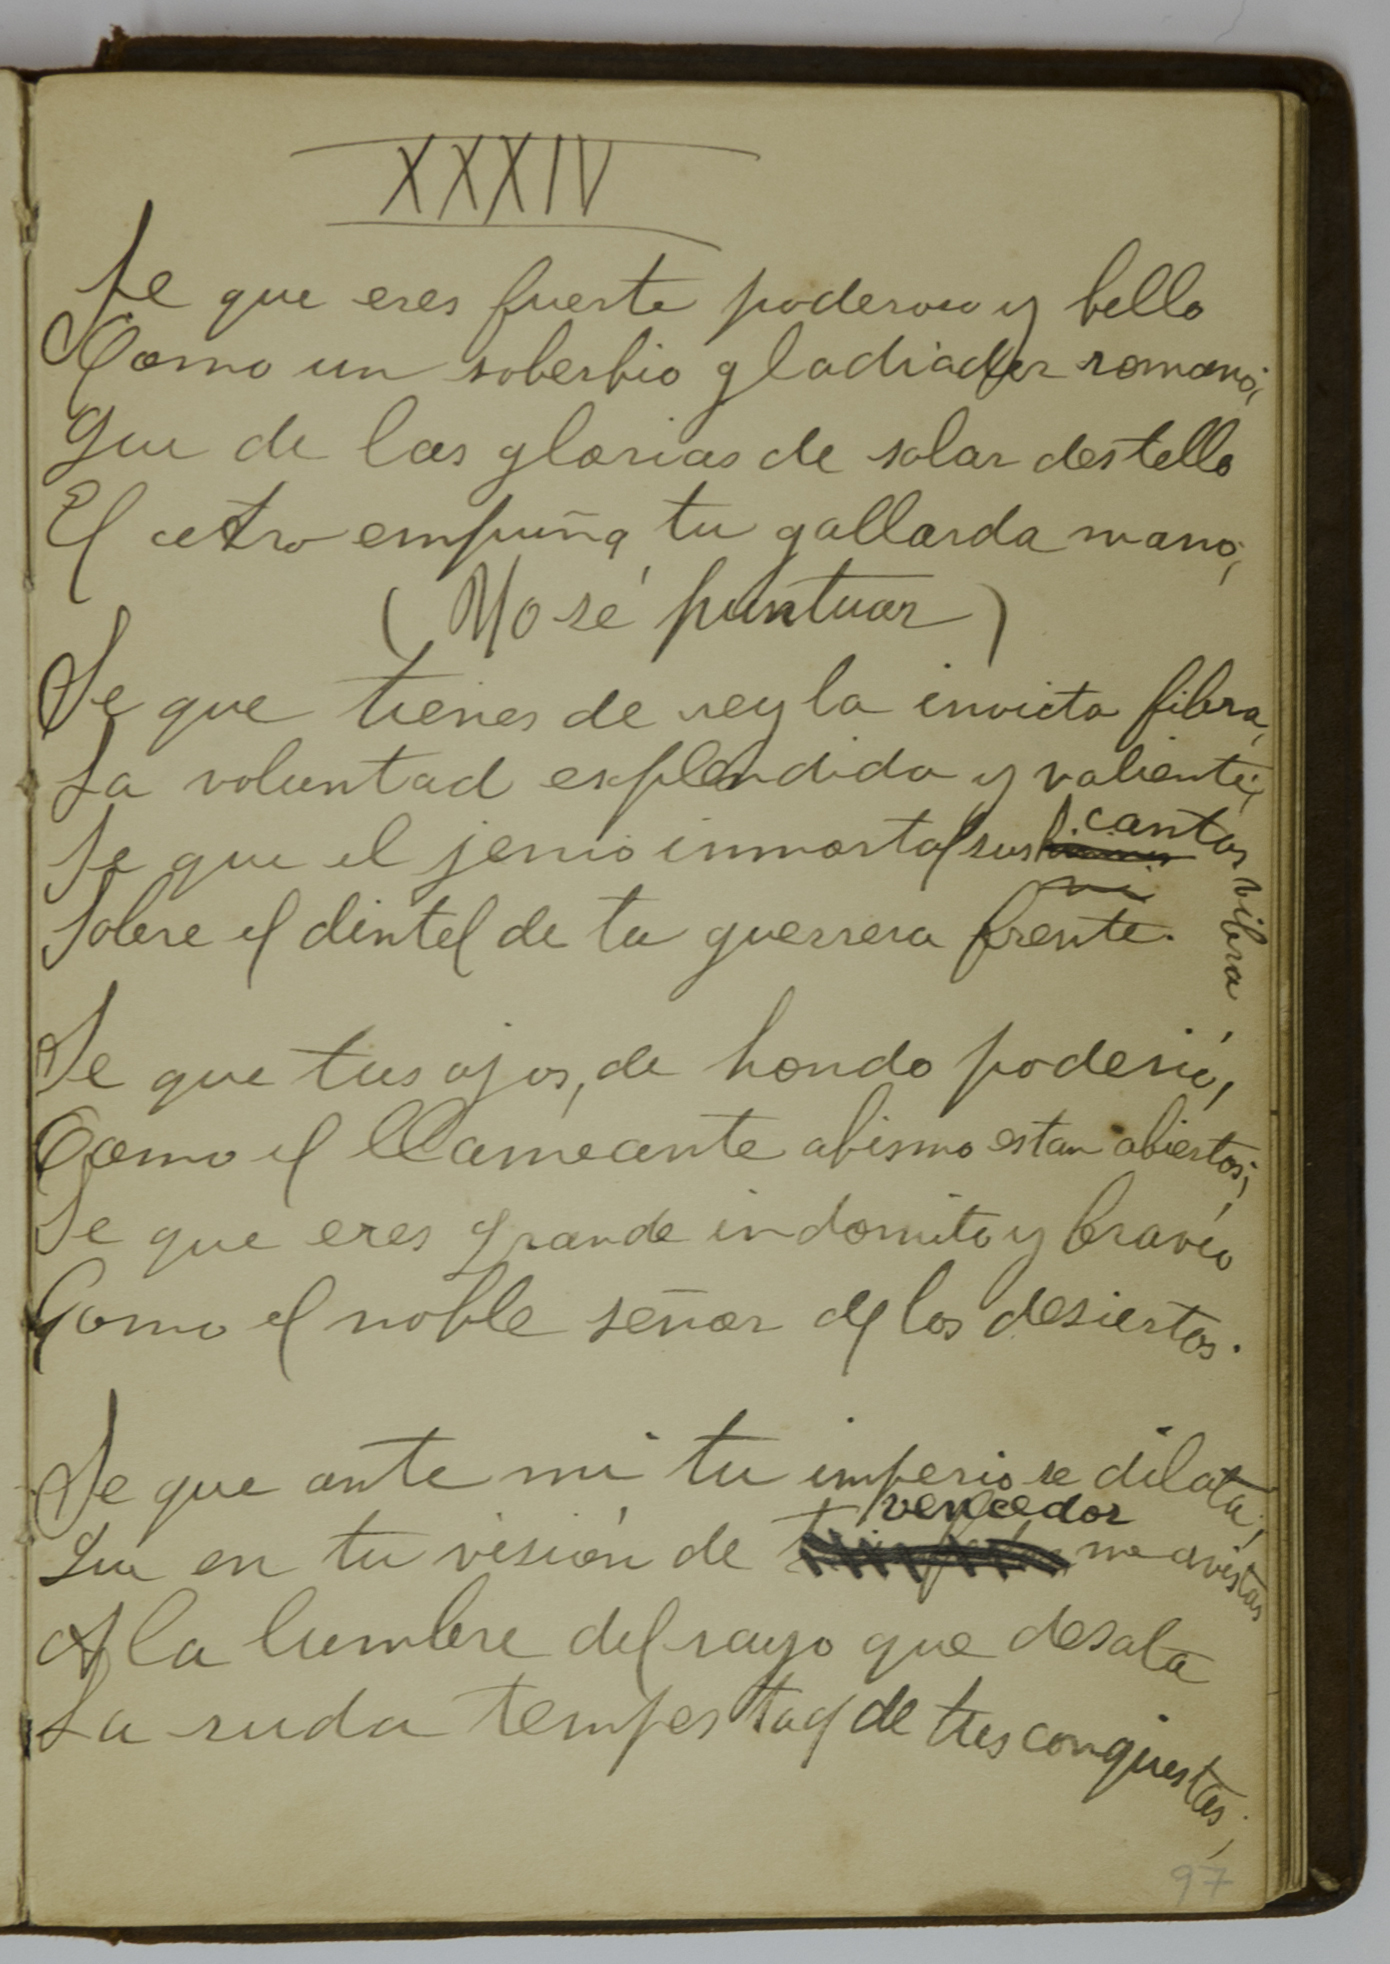 XXXIV
Se que eres fuerte poderoso y bello
Como un soberbio gladiador romano;
Que de las glorias de solar destello
El cetro empuña tu gallarda mano;
(No sé puntuar)
Se que tienes de rey la invicta fibra,
La voluntad esplendida y valiente;
Se que el jenio inmortal sus cantos vibra
Sobre el dintel de tu guerrera frente.
Se que tus ojos, de hondo poderío,
Como el llameante abismo estan abiertos;
Se que eres grande indomito y bravío
Como el noble señor de los desiertos.
Se que ante mi tu imperio se dilata;
Que en tu visión de vencedor me avistas
A la lumbre del rayo que desata
La ruda tempestad de tus conquistas;
97